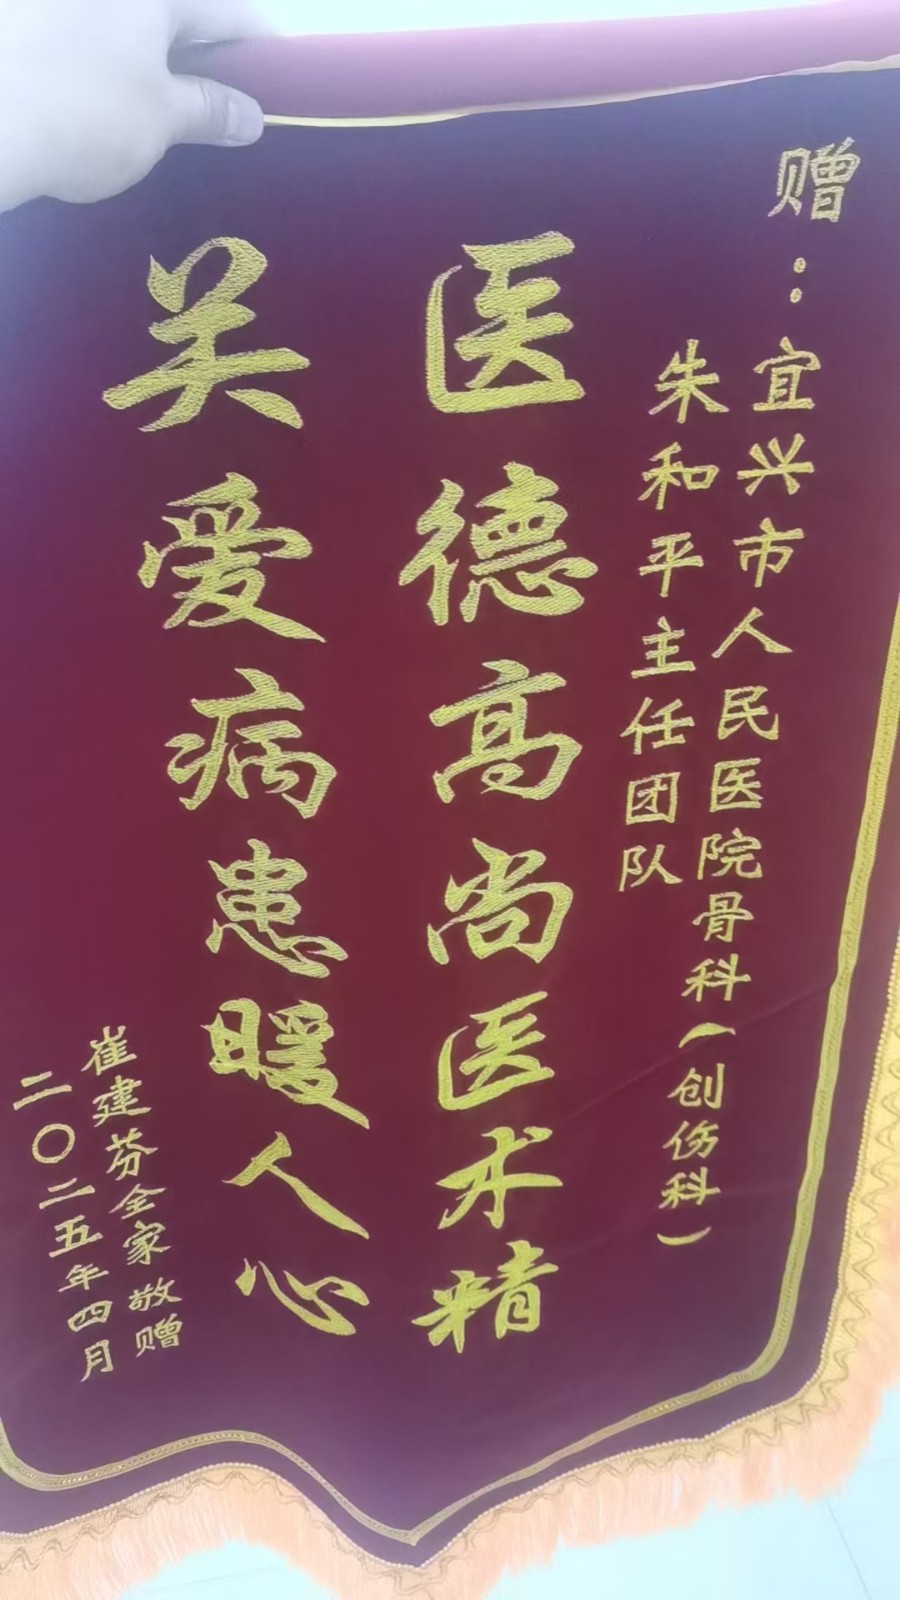 赠：宜兴市人民医院骨科(创伤科)
朱和平主任团队
医德高尚医术精
关爱病患暖人心
崔建芬全家敬赠
二〇二五年四月